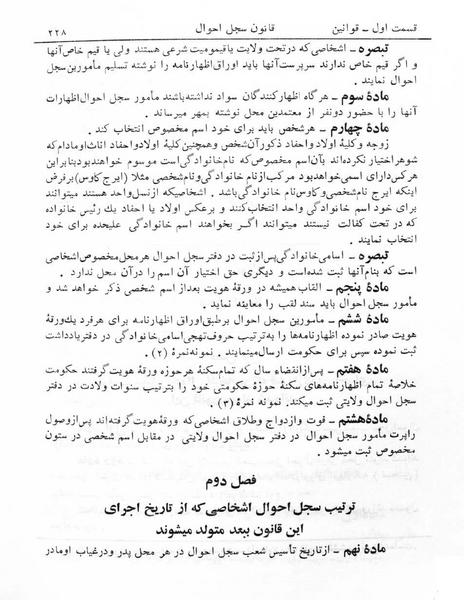 قسمت اول ـ قوانین قانون سجل احوال ۲۲۸
تبصره ـ اشخاصی که در تحت ولایت یا قیمومیت شرعی هستند ولی یا قیم خاص آنها
و اگر قیم خاص ندارند سرپرست آنها باید اوراق اظهارنامه را نوشته تسلیم مأمورین سجل
احوال نمایند .
مادۀ سوم ـ هرگاه اظهارکنندگان سواد نداشته باشند مأمور سجل احوال اظهارات
آنها را با حضور دو نفر از معتمدین محل نوشته بمهر میرساند .
مادۀ چهارم ـ هر شخص باید برای خود اسم مخصوص انتخاب کند .
زوجه و کلیۀ اولاد و احفاد ذکور آن شخص و همچنین کلیۀ اولاد و احفاد اناث او مادام که
شوهر اختیار نکرده‌اند بآن اسم مخصوص که نام خانوادگی است موسوم خواهند بود بنابر این
هرکس دارای اسمی خواهد بود مرکب از نام خانوادگی و نام شخصی مثلا (ایرج کاوس) بر فرض
اینکه ایرج نام شخصی و کاوس نام خانوادگی باشد . اشخاصیکه از نسل واحد هستند میتوانند
برای خود اسم خانوادگی واحد انتخاب کنند و برعکس اولاد یا احفاد یک رئیس خانواده
که در تحت کفالت نیستند میتوانند اگر بخواهند اسم خانوادگی علیحده برای خود
انتخاب نمایند .
تبصره ـ اسامی خانوادگی پس از ثبت در دفتر سجل احوال هر محل مخصوص اشخاصی
است که بنام آنها ثبت شده است و دیگری حق اختیار آن اسم را در آن محل ندارد .
مادۀ پنجم ـ القاب همیشه در ورقۀ هویت بعد از اسم شخصی ذکر خواهد شد و
مأمور سجل احوال باید سند لقب را معاینه نماید .
مادۀ ششم ـ مأمورین سجل احوال بر طبق اوراق اظهارنامه برای هر فرد یک ورقۀ
هویت صادر نموده اظهارنامه‌ها را به ترتیب حروف تهجی اسامی خانوادگی در دفتر یادداشت
ثبت نموده سپس برای حکومت ارسال مینمایند . نمونه نمرۀ (۲) .
مادۀ هفتم ـ پس از انقضاء سال که تمام سکنۀ هر حوزه ورقۀ هویت گرفتند حکومت
خلاصۀ تمام اظهارنامه‌های سکنۀ حوزۀ حکومتی خود را بترتیب سنوات ولادت در دفتر
سجل احوال ولایتی ثبت میکند. نمونه نمرۀ (۳) .
مادۀ هشتم ـ فوت و ازدواج و طلاق اشخاصی که ورقۀ هویت گرفته‌اند پس از وصول
راپرت مأمور سجل احوال در دفتر سجل احوال ولایتی در مقابل اسم شخصی در ستون
مخصوص ثبت میشود .
فصل دوم
ترتیب سجل احوال اشخاصی که از تاریخ اجرای
این قانون ببعد متولد میشوند
مادۀ نهم ـ از تاریخ تأسیس شعب سجل احوال در هر محل پدر و در غیاب او مادر